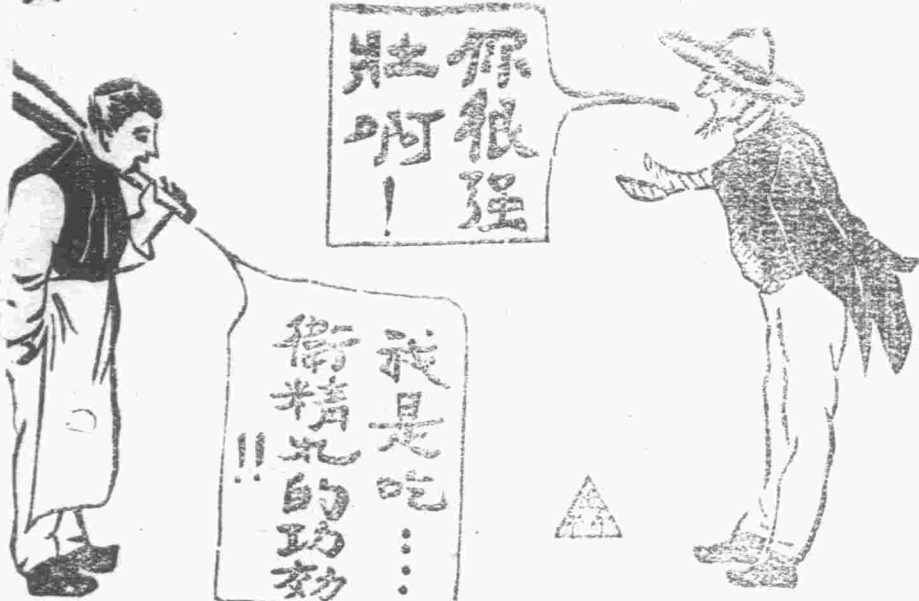 你很强
壯啊！
我是吃⋮⋮
衛精丸的功効
!!